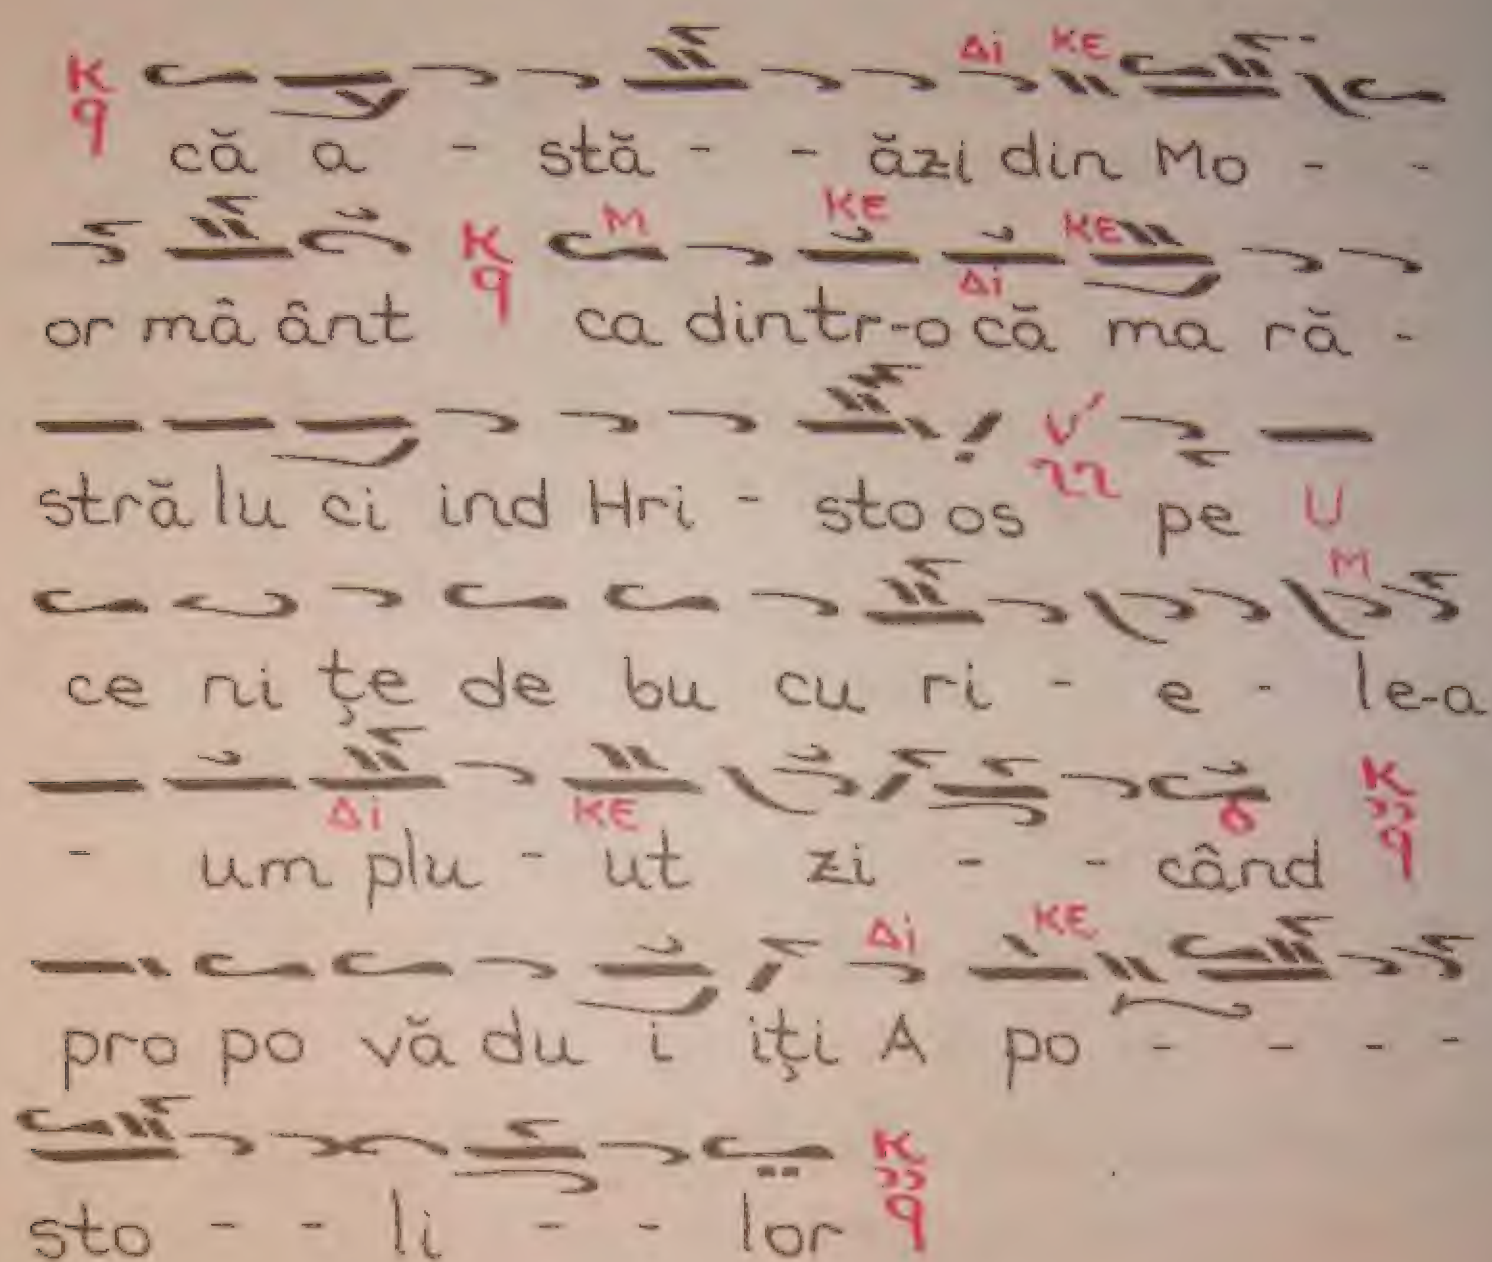 Δi KE
K q
că a - stă - - ăzi din Mo - -
M KE Δi KE
or mâ ânt K q ca dintr-o că ma ră -
stră lu ci ind Hri - sto os pe U
M
ce ni țe de bu cu ri - e - le-a
Δi KE
- um plu - ut zi - - când K q
Δi KE
pro po vă du i iți A po - - - -
sto - - li - - lor K q